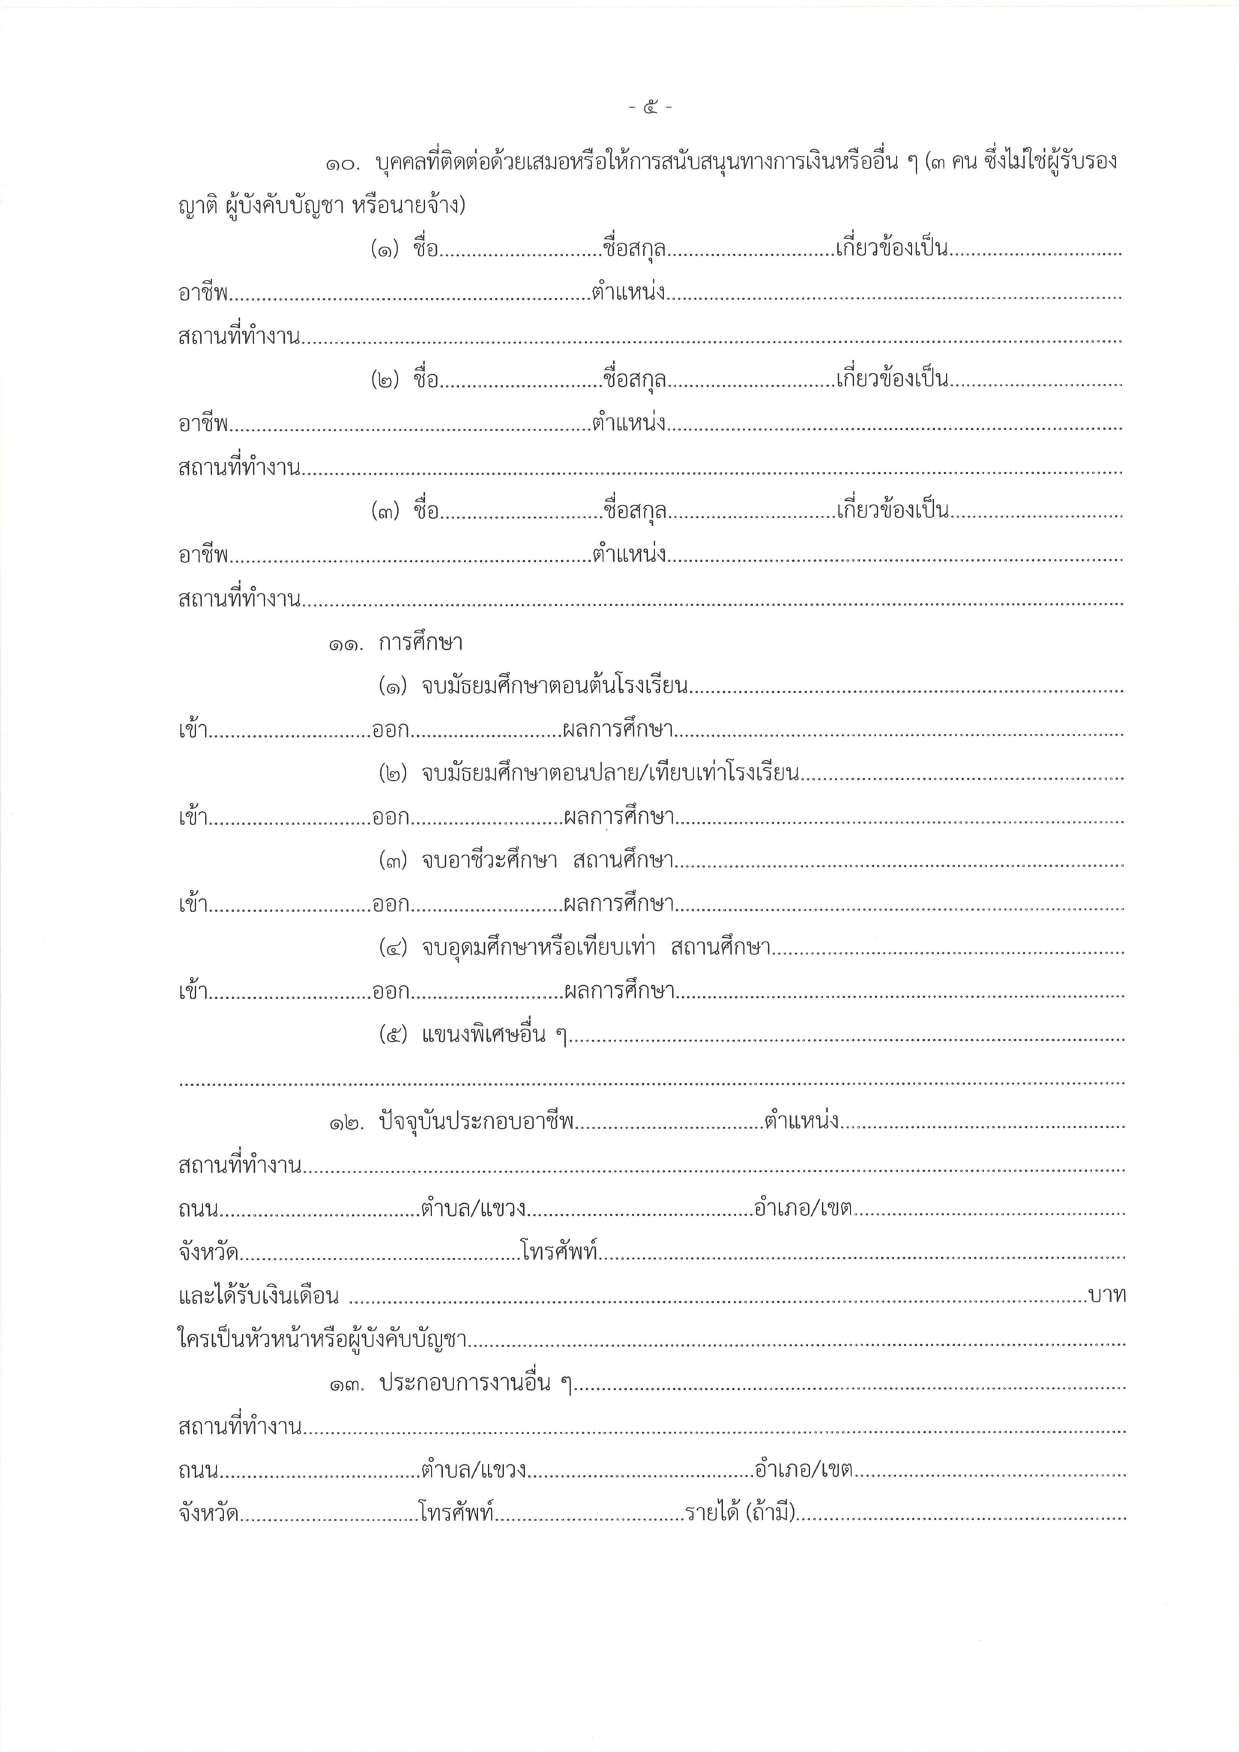 - ๕ -
๑๐. บุคคลที่ติดต่อด้วยเสมอหรือให้การสนับสนุนทางการเงินหรืออื่น ๆ (๓ คน ซึ่งไม่ใช่ผู้รับรอง
ญาติ ผู้บังคับบัญชา หรือนายจ้าง)
(๑) ชื่อ..............................ชื่อสกุล..............................เกี่ยวข้องเป็น................................
อาชีพ..................................................................ตำแหน่ง....................................................................................
สถานที่ทำงาน.......................................................................................................................................................
(๒) ชื่อ..............................ชื่อสกุล..............................เกี่ยวข้องเป็น................................
อาชีพ..................................................................ตำแหน่ง....................................................................................
สถานที่ทำงาน.......................................................................................................................................................
(๓) ชื่อ..............................ชื่อสกุล..............................เกี่ยวข้องเป็น................................
อาชีพ..................................................................ตำแหน่ง....................................................................................
สถานที่ทำงาน.......................................................................................................................................................
๑๑. การศึกษา
(๑) จบมัธยมศึกษาตอนต้นโรงเรียน................................................................................
เข้า..............................ออก............................ผลการศึกษา...................................................................................
(๒) จบมัธยมศึกษาตอนปลาย/เทียบเท่าโรงเรียน............................................................
เข้า..............................ออก............................ผลการศึกษา...................................................................................
(๓) จบอาชีวะศึกษา สถานศึกษา...................................................................................
เข้า..............................ออก............................ผลการศึกษา...................................................................................
(๔) จบอุดมศึกษาหรือเทียบเท่า สถานศึกษา.................................................................
เข้า..............................ออก............................ผลการศึกษา...................................................................................
(๕) แขนงพิเศษอื่น ๆ......................................................................................................
..............................................................................................................................................................................
๑๒. ปัจจุบันประกอบอาชีพ...................................ตำแหน่ง....................................................
สถานที่ทำงาน.......................................................................................................................................................
ถนน.....................................ตำบล/แขวง..........................................อำเภอ/เขต..................................................
จังหวัด....................................................โทรศัพท์.................................................................................................
และได้รับเงินเดือน ........................................................................................................................................บาท
ใครเป็นหัวหน้าหรือผู้บังคับบัญชา.........................................................................................................................
๑๓. ประกอบการงานอื่น ๆ......................................................................................................
สถานที่ทำงาน.......................................................................................................................................................
ถนน.....................................ตำบล/แขวง..........................................อำเภอ/เขต..................................................
จังหวัด.................................โทรศัพท์...................................รายได้ (ถ้ามี).............................................................